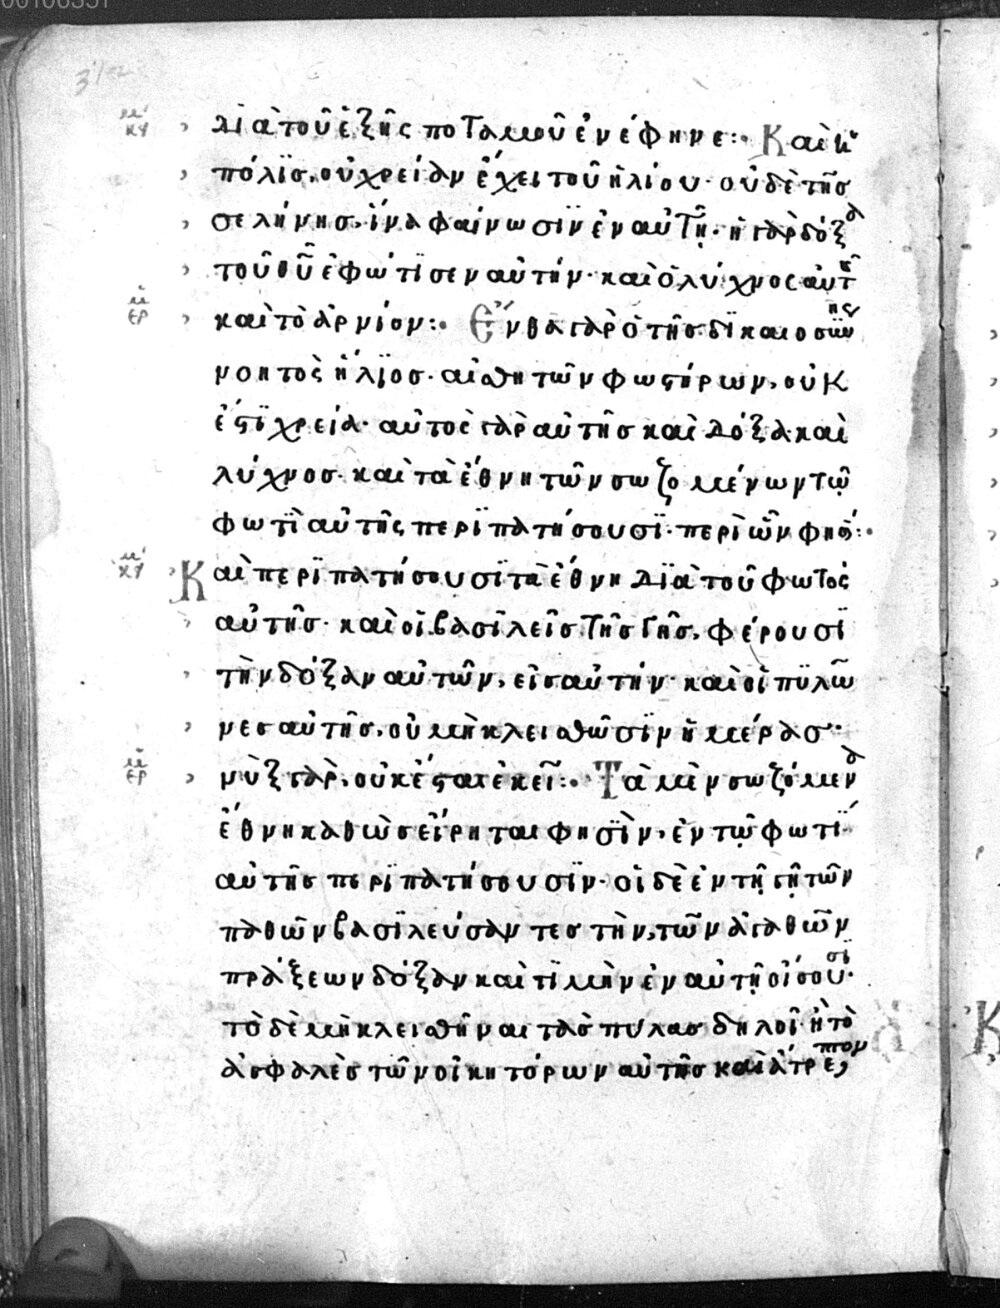 διὰ τοῦ ἑξῆς ποταμοῦ ἐνέφηνε: Καὶ ἡ
πόλϊσ, οὐ χρείαν ἔχει τοῦ ἡλίου· οὐδὲ τῆσ
σελήνησ, ἵνα φαίνωσϊν ἐν αὐτῆ· ἡ γὰρ δόξα
τοῦ θῦ ἐφώτϊσεν αὐτήν· καὶ ὁ λύχνος αὐτῆ
καὶ τὸ ἀρνίον: Ἔνθα γὰρ ὁ τῆσ δϊκαιοσύνης
νοητὸς ἥλϊοσ· αἰσθητῶν φωστήρων, οὐκ
ἔστϊ χρεία· αὐτὸς γὰρ αὐτῆσ καὶ δόξα καὶ
λύχνοσ· καὶ τὰ ἔθνη τῶν σωζομένων τῶ
φωτῒ αὐτῆς περϊπατήσουσϊ· περὶ ὧν φησί:
Καὶ περϊπατήσουσϊ τὰ ἔθνη διὰ τοῦ φωτὸς
αὐτῆσ· καὶ οἱ βασϊλεῖσ τῆσ γῆσ, φέρουσϊ
τὴν δόξαν αὐτῶν, εἰσ αὐτήν· καὶ οἱ πϋλῶ
νεσ αὐτῆσ, οὐ μὴ κλεισθῶσϊν ἡμέρασ·
νὺξ γὰρ, οὐκ ἔσται ἐκεῖ: Τὰ μὲν σωζόμενα
ἔθνη καθὼσ εἴρηται φησῒν, ἐν τῶ φωτῒ
αὐτῆσ περϊπατήσουσϊν· οἱ δὲ ἐν τῆ γῆ τῶν
παθῶν βασϊλεύσαντεσ τὴν, τῶν ἀγαθῶν
πράξεων δόξαν καὶ τϊμὴν ἐν αὐτῆ οἴσουσϊ·
τὸ δὲ μὴ κλεισθῆναι τὰσ πύλασ δηλοῖ ἢ τὸ
ἀσφαλὲσ τῶν οἰκητόρων αὐτῆσ καὶ ἄτρεπτον,